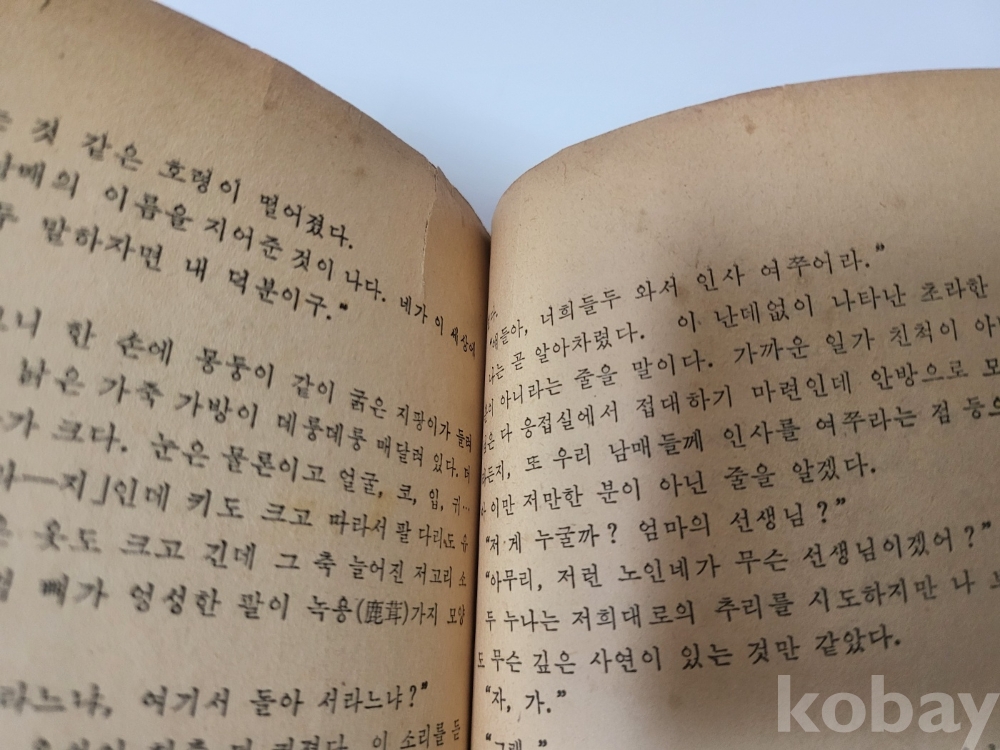 것 같은 호령이 떨어졌다.
이름을 지어준 것이 나다. 네가 이 세상에
말하자면 내 덕분이구."
한 손에 몽둥이 같이 굵은 지팡이가 들려
낡은 가죽 가방이 데룽데룽 매달려 있다. 더
크다. 눈은 물론이고 얼굴, 코, 입, 귀…
―지」인데 키도 크고 따라서 팔 다리도 유
옷도 크고 긴데 그 축 늘어진 저고리 소
뼈가 엉성한 팔이 녹용(鹿茸)가지 모양
라느냐, 여기서 돌아 서라느냐?"
이 소리를 듣
"얘들아, 너희들두 와서 인사 여쭈어라."
나는 곧 알아차렸다. 이 난데없이 나타난 초라한
아니라는 줄을 말이다. 가까운 일가 친척이 아
다 응접실에서 접대하기 마련인데 안방으로 모
하든지, 또 우리 남매들께 인사를 여쭈라는 점 등으
이만 저만한 분이 아닌 줄을 알겠다.
"저게 누굴까? 엄마의 선생님?"
"아무리, 저런 노인네가 무슨 선생님이겠어?"
두 누나는 저희대로의 추리를 시도하지만 나
도 무슨 깊은 사연이 있는 것만 같았다.
"자, 가."
"그래."
kobay